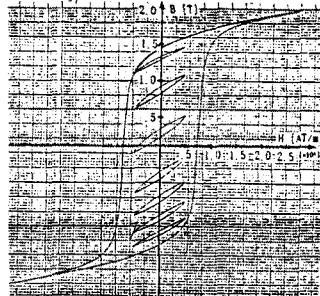 2.0 B [T]
1.5
1.0
.5
H [AT/m
.5 1.0 1.5 2.0 2.5